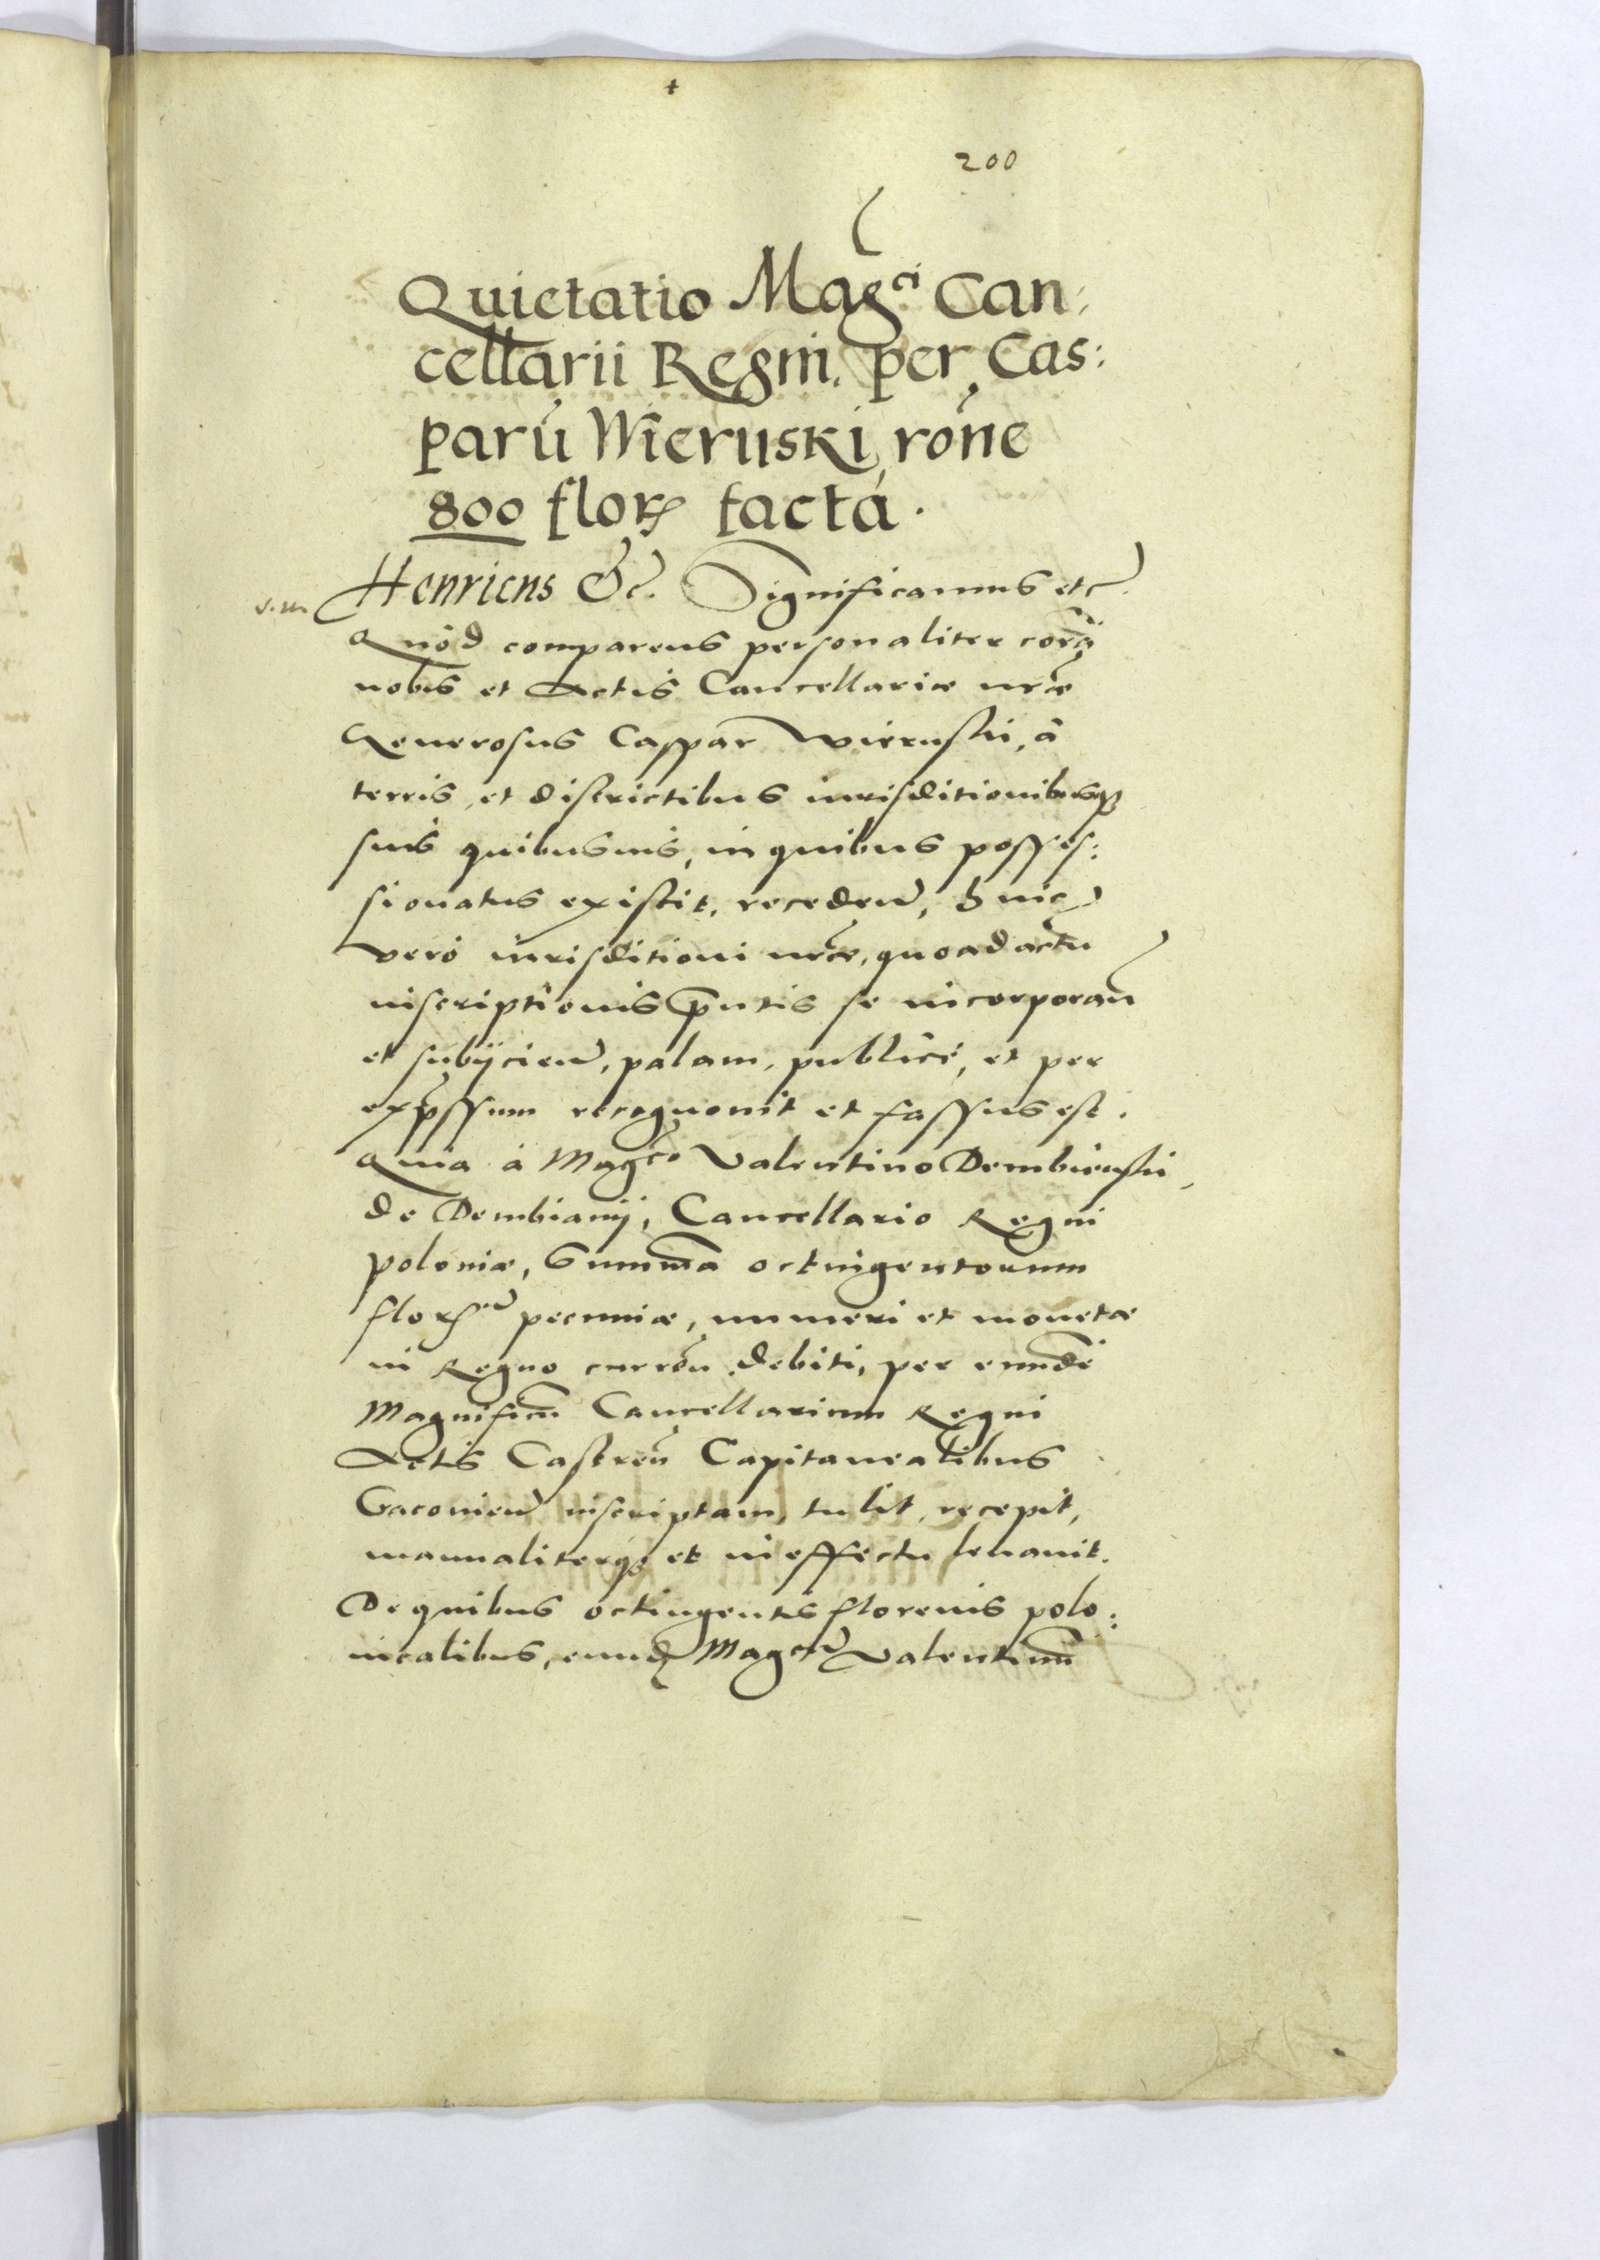 200
Quietatio Mag^ci Can:
cellarii Regni, per Cas:
parū Wieruski, rōne
800 flor. facta.
Henricus &c. Significamus etc.
Quod comparens personaliter corā
nobis et Actis Cancellariæ nræ
Generosus Caspar Wieruski, à
terris, et districtibus iurisditionibusq
suis quibusuis, in quibus posses:
sionatus existit, receden, huic
vero iurisditioni nræ, quoad actū
inscriptionis pntis se incorporan
et subijcien, palam, publicè, et per
expssum recognouit et fassus est.
Quia à Mag^co Valentino Dembienski,
de Dembiany, Cancellario Regni
Poloniæ, Summa octuigentorum
flor. pecuniæ, numeri et monetæ
in Regno curren. debiti, per eundē
Magnificū Cancellarium Regni
Actis Castren Capitanealibus
inscriptam, tulit, recepit,
manualiterq et in effectu leuauit.
De quibus octingentis florenis polo:
nicalibus, eund Mag^cū Valentinū